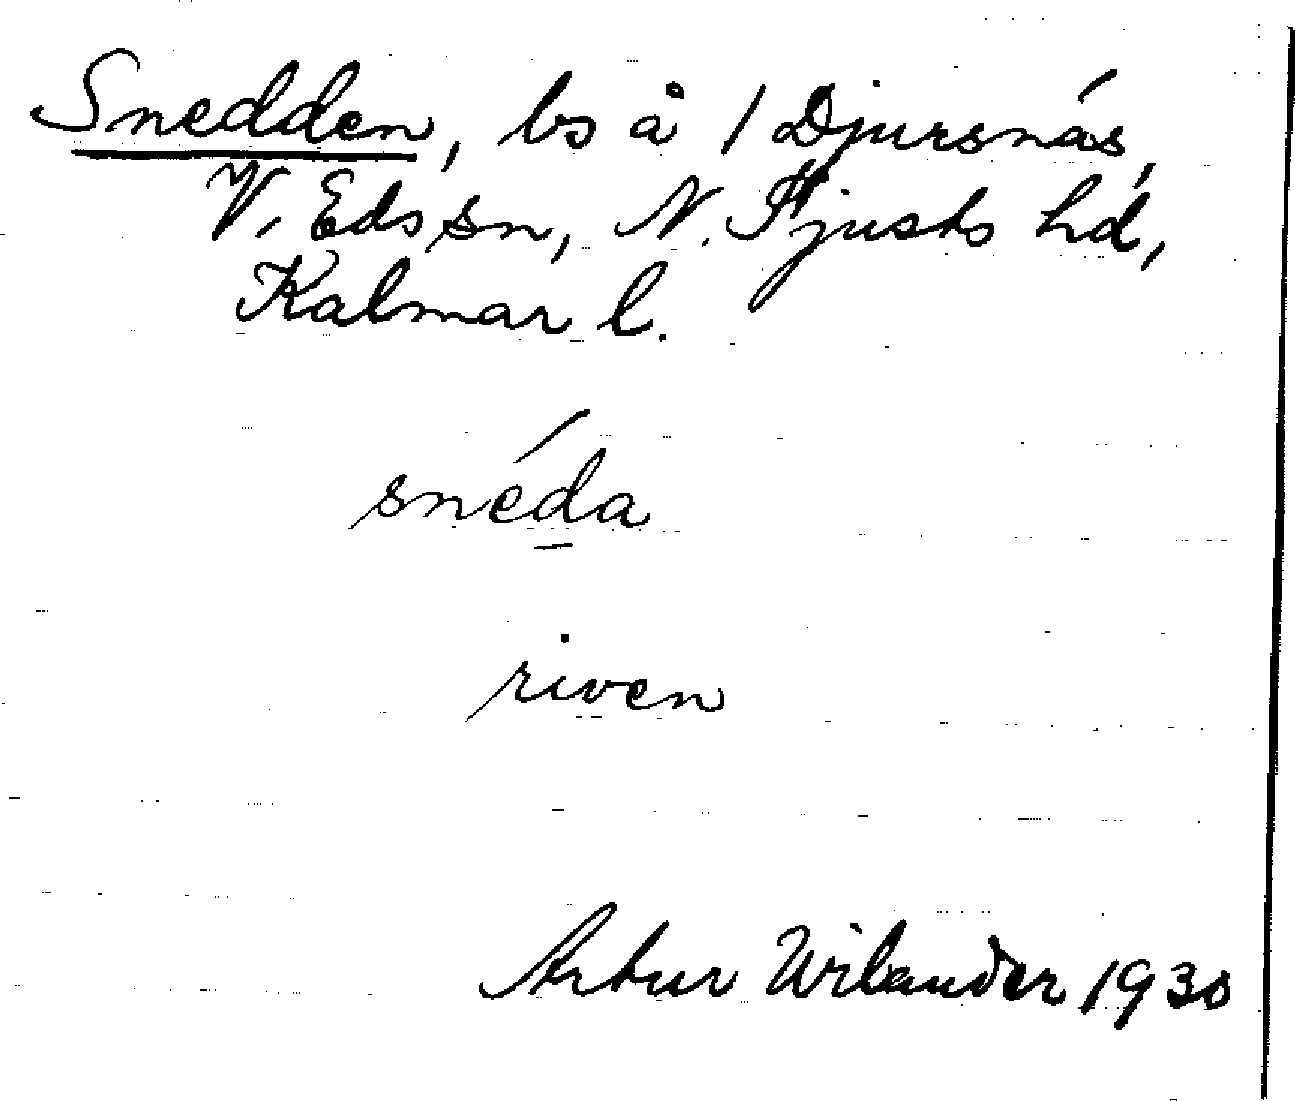 Snedden, bs å 1 Djursnäs,
V. Eds sn, N. Tjusts hd,
Kalmar l.
snéda
riven
Artur Wilander 1930